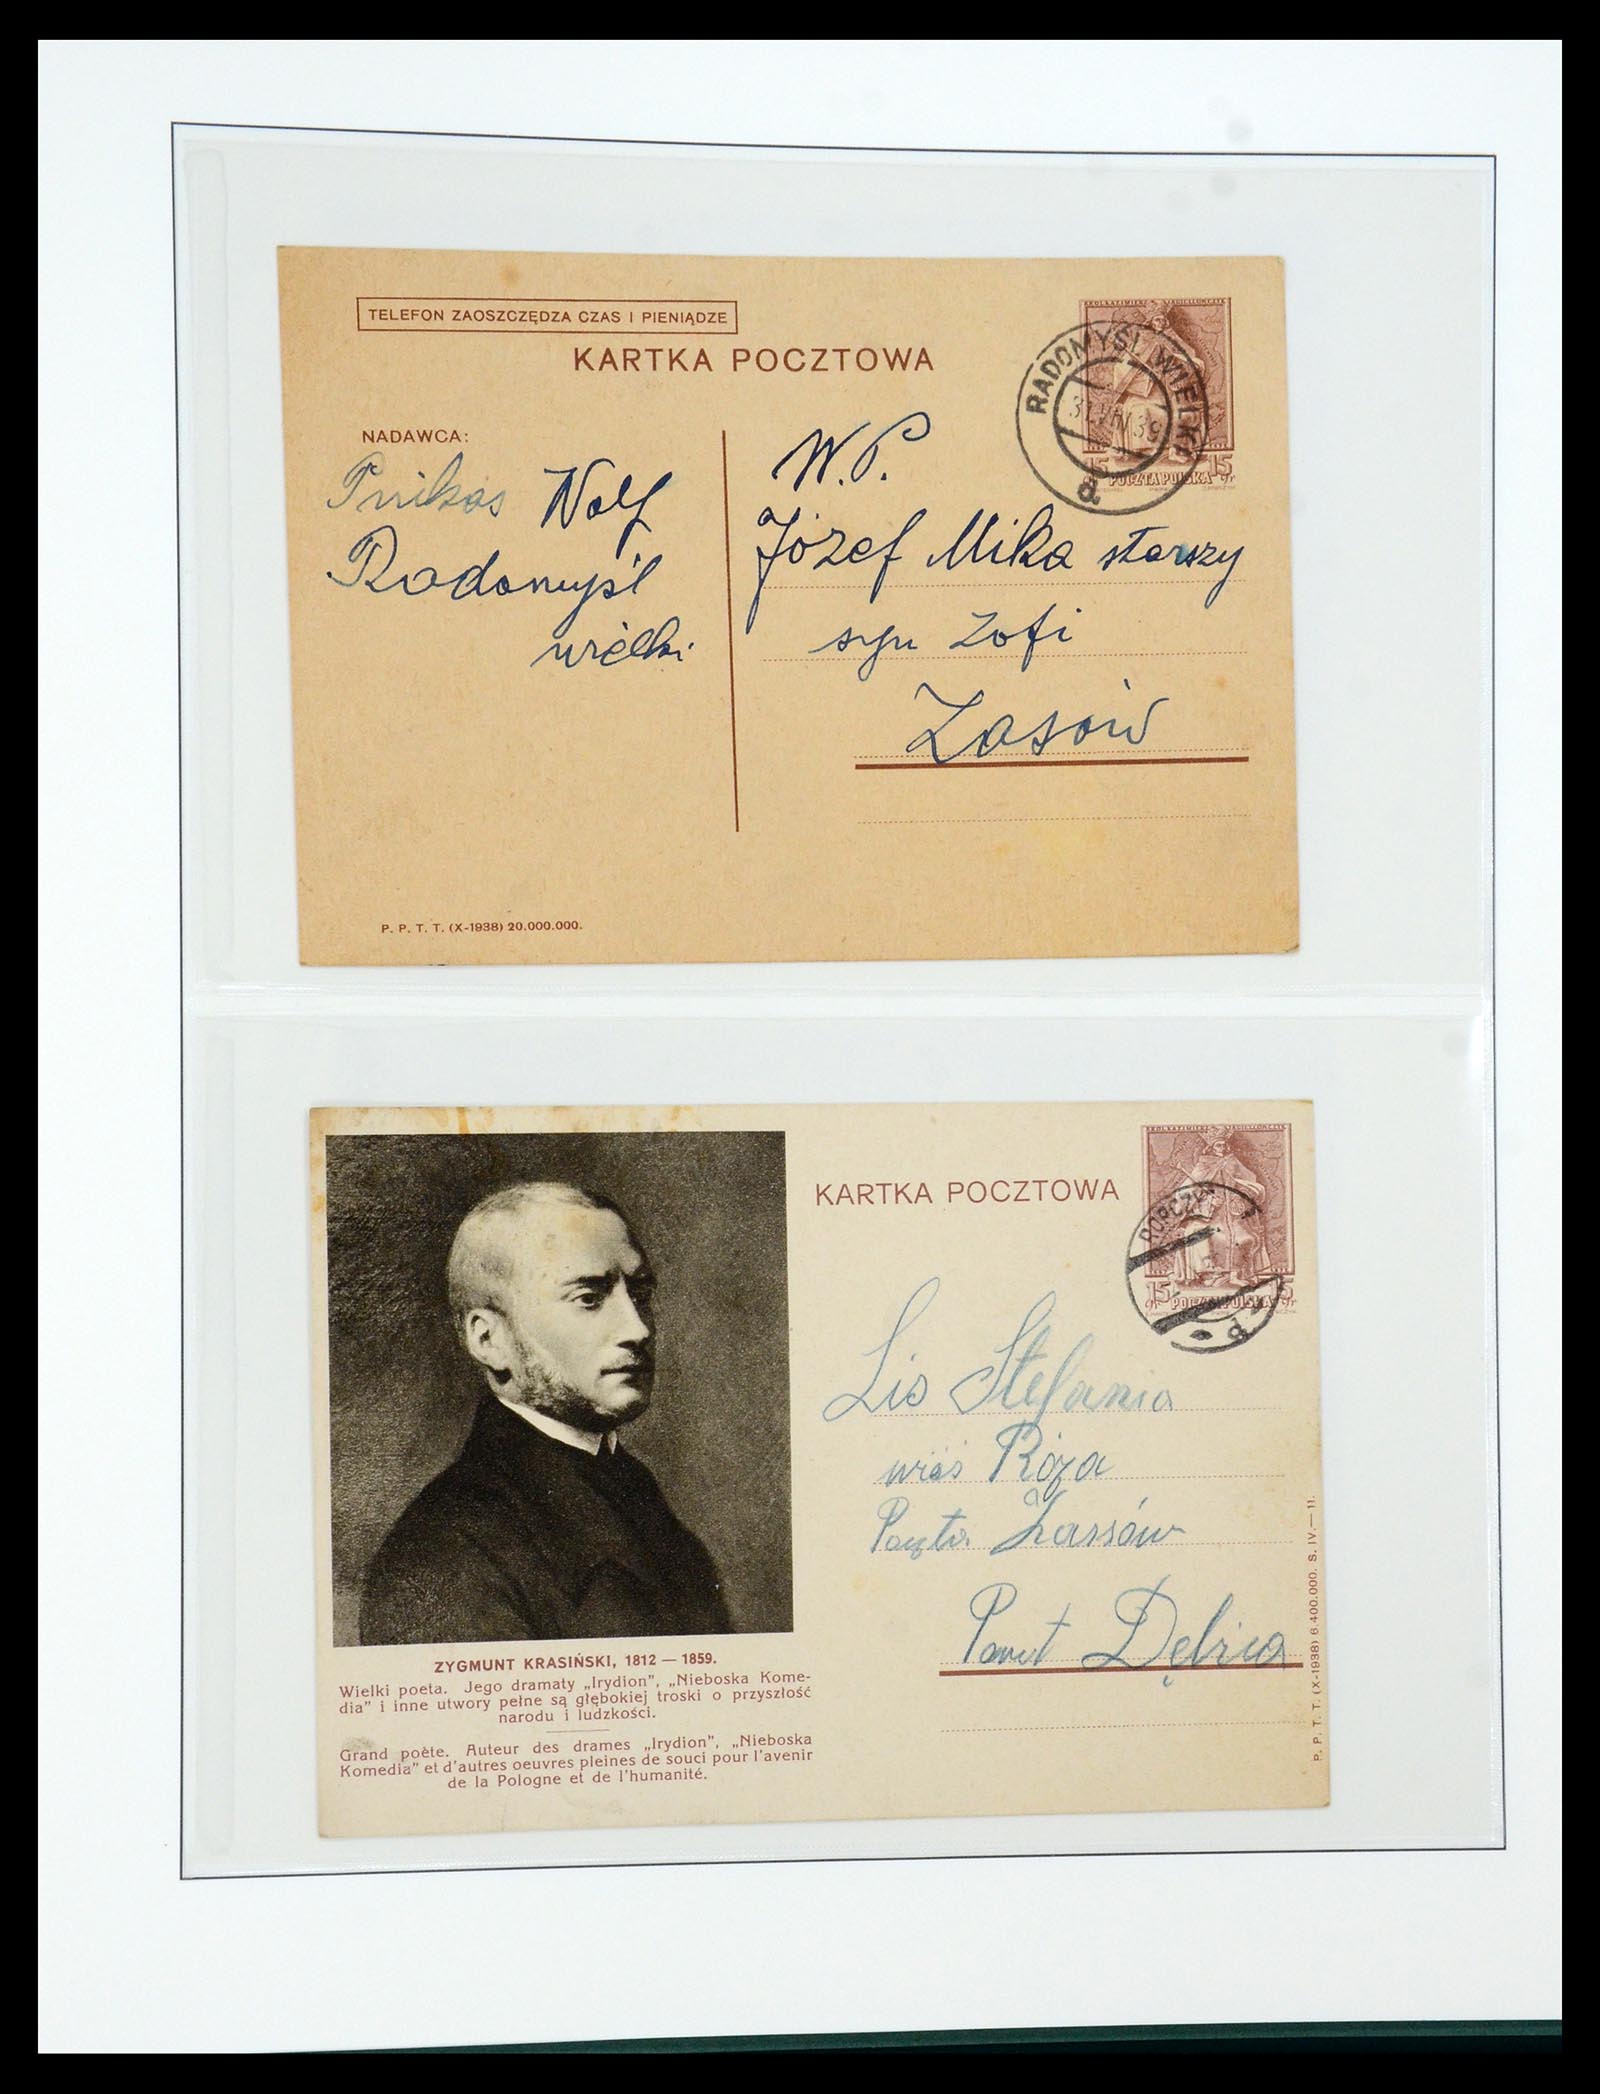 TELEFON ZAOSZCZĘDZA CZAS I PIENIĄDZE
KARTKA POCZTOWA
KRÓL KAZIMIERZ JAGIELLOŃCZYK
RADOMYŚL WIELKI
31.VIII.39
d.
15 gr POCZTA POLSKA 15 gr
NADAWCA:
Wolf
Radomyśl
wielki
W. P.
Józef Mika starszy
syn Zofi
Zasów
P. P. T. T. (X-1938) 20.000.000.
KARTKA POCZTOWA
KRÓL KAZIMIERZ JAGIELLOŃCZYK
ROPCZYCE
15 gr POCZTA POLSKA 15 gr
Lis Stefania
wieś Róża
Poczta Zassów
Powt Dębica
ZYGMUNT KRASIŃSKI, 1812 — 1859.
Wielki poeta. Jego dramaty „Irydion”, „Nieboska Kome-
dia” i inne utwory pełne są głębokiej troski o przyszłość
narodu i ludzkości.
Grand poète. Auteur des drames „Irydion”, „Nieboska
Komedia” et d'autres oeuvres pleines de souci pour l'avenir
de la Pologne et de l'humanité.
P. P. T. T. (X-1938) 6.400.000. S. IV.— 11.